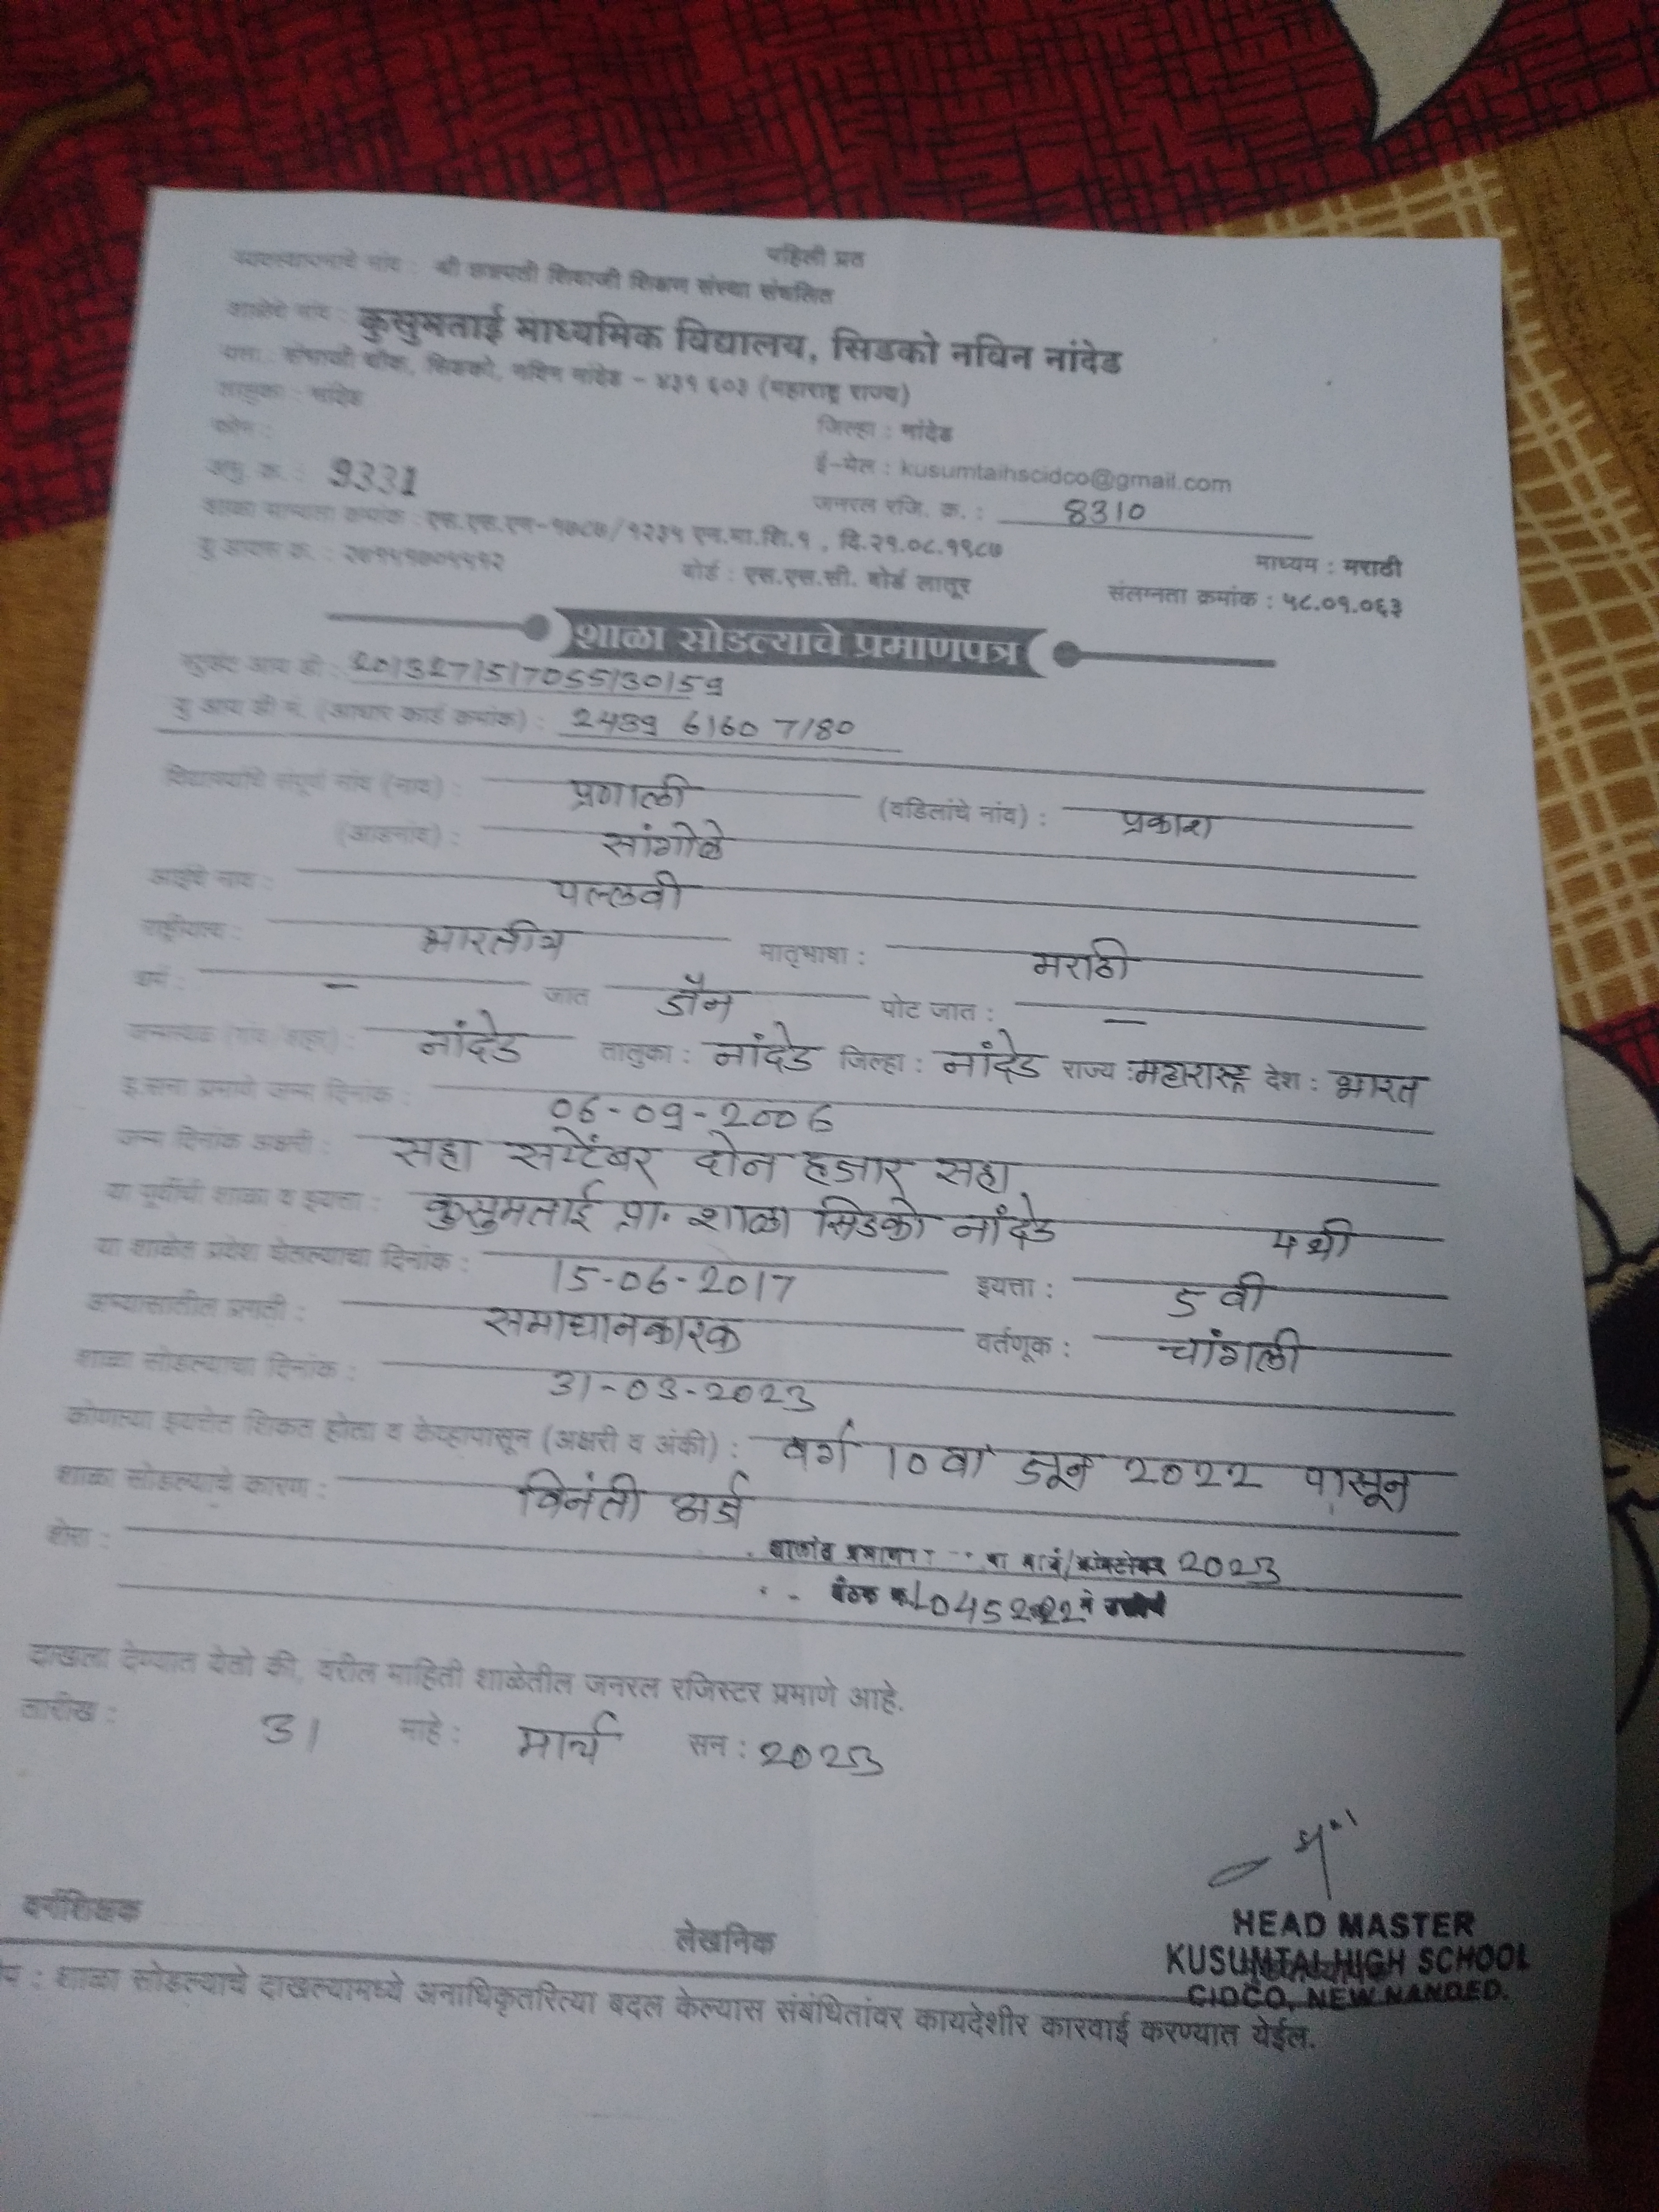 पहिली प्रत
व्यवस्थापनाचे नांव : श्री छत्रपती शिवाजी शिक्षण संस्था संचलित
शाळेचे नांव : कुसुमताई माध्यमिक विद्यालय, सिडको नविन नांदेड
पत्ता : संभाजी चौक, सिडको, नविन नांदेड - ४३१ ६०३ (महाराष्ट्र राज्य)
तालुका : नांदेड जिल्हा : नांदेड
फोन : ई-मेल : kusumtaihscidco@gmail.com
अनु क्र. : 9331 जनरल रजि. क्र. : 8310
शाळा मान्यता क्रमांक : एस.एस.एन-१७८७/१२३५ एन.मा.शि.१ , दि.२१.०८.१९८७ माध्यम : मराठी
यु डायस क्र. : बोर्ड : एस.एस.सी. बोर्ड लातूर संलग्नता क्रमांक : ५८.०१.०६३
शाळा सोडल्याचे प्रमाणपत्र
स्टुडंट आय डी : 2013271517055130159
यु आय डी नं. (आधार कार्ड क्रमांक) : 2439 6160 7180
विद्यार्थ्याचे संपूर्ण नांव (नाव) : प्रणाली (वडिलांचे नांव) : प्रकाश
(आडनांव) : सांगोळे
आईचे नाव : पल्लवी
राष्ट्रीयत्व : भारतीय मातृभाषा : मराठी
धर्म : - जात जैन पोट जात : -
जन्मस्थळ (गांव/शहर) : नांदेड तालुका : नांदेड जिल्हा : नांदेड राज्य : महाराष्ट्र देश : भारत
इ.सना प्रमाणे जन्म दिनांक : 06-09-2006
जन्म दिनांक अक्षरी : सहा सप्टेंबर दोन हजार सहा
या पूर्वीची शाळा व इयत्ता : कुसुमताई प्रा. शाळा सिडको नांदेड ४थी
या शाळेत प्रवेश घेतल्याचा दिनांक : 15-06-2017 इयत्ता : 5वी
अभ्यासातील प्रगती : समाधानकारक वर्तणूक : चांगली
शाळा सोडल्याचा दिनांक : 31-03-2023
कोणत्या इयत्तेत शिकत होता व केव्हापासून (अक्षरी व अंकी) : वर्ग 10वा जून 2022 पासून
शाळा सोडल्याचे कारण : विनंती अर्ज
शेरा : शालांत मार्च/ऑक्टोबर 2023
बैठक क्र. ने
दाखला देण्यात येतो की, वरील माहिती शाळेतील जनरल रजिस्टर प्रमाणे आहे.
तारीख : 31 माहे : मार्च सन : 2023
वर्गशिक्षक लेखनिक
HEAD MASTER
KUSUMTAI HIGH SCHOOL
CIDCO, NEW NANDED.
शाळा सोडल्याचे दाखल्यामध्ये अनाधिकृतरित्या बदल केल्यास संबंधितांवर कायदेशीर कारवाई करण्यात येईल.